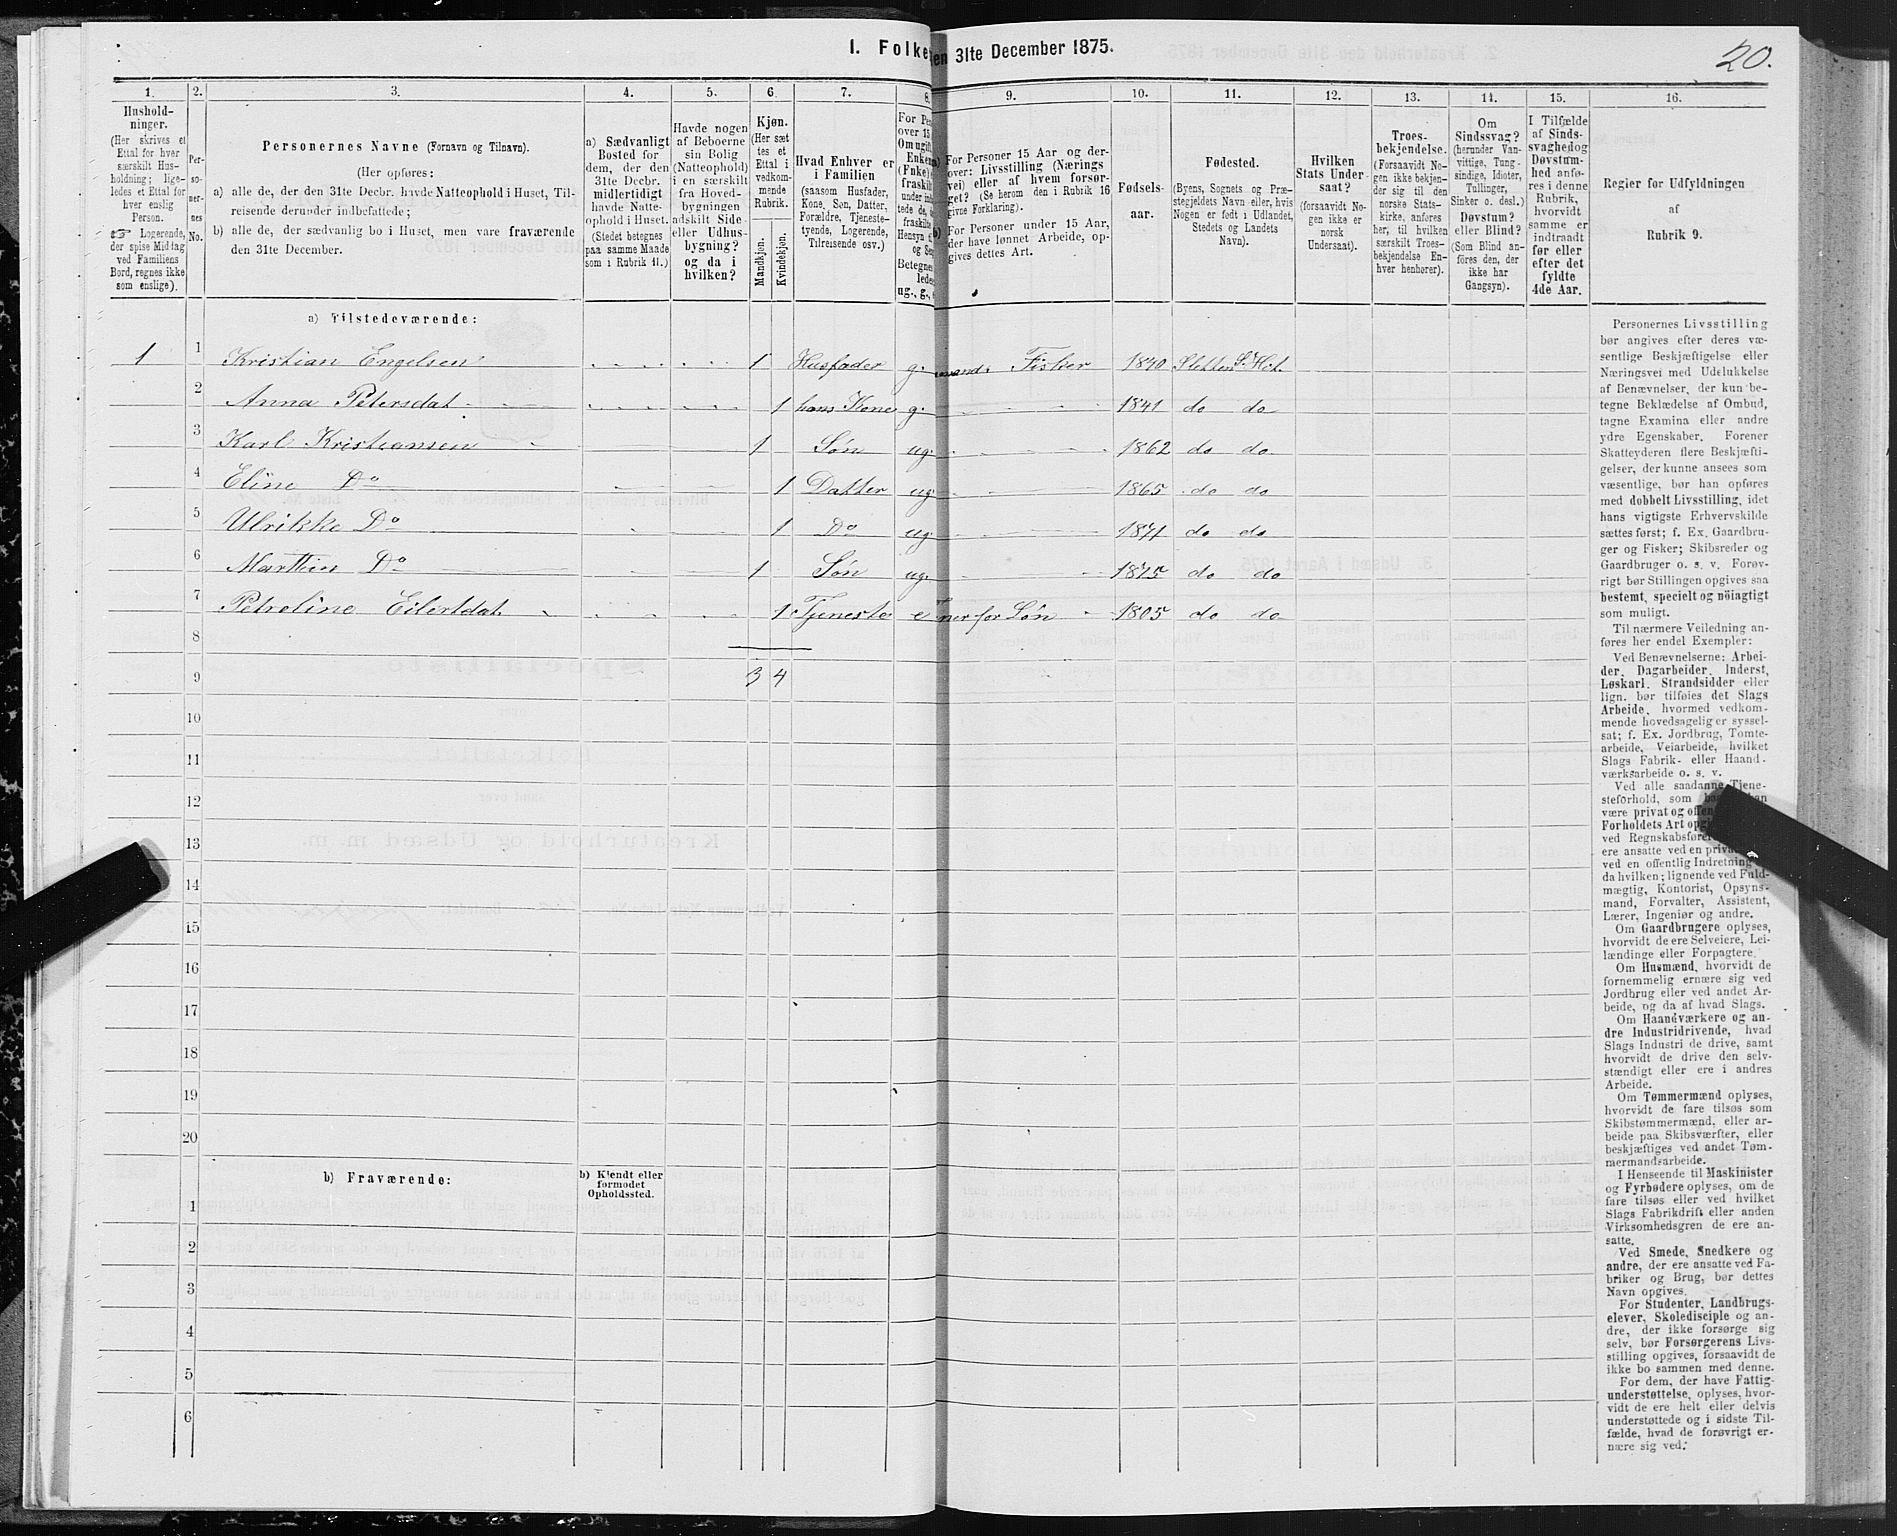 I. Folke
en 31te December 1875.
20.
1. 2. 3. 4. 5. 6. 7. 8. 9. 10. 11. 12. 13. 14. 15. 16.
Hushold-
ninger.
(Her skrives et
Ettal for hver
særskilt Hus-
holdning; lige-
ledes et Ettal for
hver enslig
Person.
☞ Logerende,
der spise Midtag
ved Familiens
Bord, regnes ikke
som enslige).
Per-
so-
ner-
nes
No.
Personernes Navne (Fornavn og Tilnavn).
(Her opføres:
a) alle de, der den 31te Decbr. havde Natteophold i Huset, Til-
reisende derunder indbefattede;
b) alle de, der sædvanlig bo i Huset, men vare fraværende
den 31te December.
a) Sædvanligt
Bosted for
dem, der den
31te Decbr.
midlertidigt
havde Natte-
ophold i Huset.
(Stedet betegnes
paa samme Maade
som i Rubrik 11.)
Havde nogen
af Beboerne
sin Bolig
(Natteophold)
i en særskilt
fra Hoved-
bygningen
adskilt Side-
eller Udhus-
bygning?
og da i
hvilken?
Kjøn.
(Her sæt
tes et
Ettal i
vedkom-
mende
Rubrik.
Mandkjøn.
Kvindekjøn.
Hvad Enhver er
i Familien
(saasom Husfader,
Kone, Søn, Datter,
Forældre, Tjeneste-
tyende, Logerende,
Tilreisende osv.)
For Personer 15 Aar og der-
over: Livsstilling (Nærings
vei) eller af hvem forsør-
get? (Se herom den i Rubrik 16
givne Forklaring).
For Personer under 15 Aar,
der have lønnet Arbeide, op-
gives dettes Art.
Fødsels-
aar.
Fødested.
(Byens, Sognets og Præ-
stegjeldets Navn eller, hvis
Nogen er født i Udlandet,
Stedets og Landets
Navn).
Hvilken
Stats Under-
saat?
(forsaavidt No-
gen ikke er
norsk
Undersaat).
Troes-
bekjendelse.
(Forsaavidt No-
gen ikke bekjen-
der sig til den
norske Stats-
kirke, anføres
her, til hvilken
særskilt Troes-
bekjendelse En-
hver henhører).
Om
Sindssvag?
(herunder Van-
vittige, Tung-
sindige, Idioter,
Tullinger,
Sinker o. desl.)
Døvstum?
eller Blind?
(Som Blind an-
føres den, der
ikke har
Gangsyn).
I Tilfælde
af Sinds-
svaghed og
Døvstum-
hed anfø-
res i denne
Rubrik,
hvorvidt
samme er
indtraadt
før eller
efter det
fyldte
4de Aar.
Regler for Udfyldningen
af
Rubrik 9.
a) Tilstedeværende:
1 1 Kristian Engelsen 1 Husfader g. Fisker 1840
2 Anna Petersdat 1 hans Kone g. 1841 do do
3 Karl Kristiansen 1 Søn ug. 1862 do do
4 Eline Do 1 Datter ug. 1865 do do
5 Ulrikke Do 1 Do ug. 1871 do do
6 Marthin Do 1 Søn ug. 1875 do do
7 Petroline Eilertdat 1 Tjeneste e 1805 do do
8
9 3 4
10
11
12
13
14
15
16
17
18
19
20
b) Fraværende:
b) Kjendt eller
formodet
Opholdssted.
1
2
3
4
5
6
Personernes Livsstilling
bør angives efter deres væ-
sentlige Beskjæftigelse eller
Næringsvei med Udelukkelse
af Benævnelser, der kun be-
tegne Beklædelse af Ombud,
tagne Examina eller andre
ydre Egenskaber. Forener
Skatteyderen flere Beskjæfti-
gelser, der kunne ansees som
væsentlige, bør han opføres
med dobbelt Livsstilling, idet
hans vigtigste Erhvervskilde
sættes først; f. Ex. Gaardbru-
ger og Fisker; Skibsreder og
Gaardbruger o. s. v. Forøv-
rigt bør Stillingen opgives saa
bestemt, specielt og nöiagtigt
som muligt.
Til nærmere Veiledning an-
føres her endel Exempler:
Ved Benævnelserne: Arbei-
der, Dagarbeider, Inderst,
Løskarl, Strandsidder eller
lign. bør tilføies det Slags
Arbeide, hvormed vedkom-
mende hovedsagelig er syssel-
sat; f. Ex. Jordbrug, Tomte-
arbeide, Veiarbeide, hvilket
Slags Fabrik- eller Haand-
værksarbeide o. s. v.
Ved alle saadanne Tjene-
steforhold, som
være privat og
Forholdets Art
ved
ere ansatte ved en
ved en offentlig Indretning
da hvilken; lignende ved Fuld-
mægtig, Kontorist, Opsyns-
mand, Forvalter, Assistent,
Lærer, Ingeniør og andre.
Om Gaardbrugere oplyses,
hvorvidt de ere Selveiere, Lei-
lændinge eller Forpagtere.
Om Husmænd, hvorvidt de
fornemmelig ernære sig ved
Jordbrug eller ved andet Ar-
beide, og da af hvad Slags.
Om Haandværkere og an-
dre Industridrivende, hvad
Slags Industri de drive, samt
hvorvidt de drive den selv-
stændigt eller ere i andres
Arbeide.
Om Tømmermænd oplyses,
hvorvidt de fare tilsøs som
Skibstømmermænd, eller ar-
beide paa Skibsværfter, eller
beskjæftiges ved andet Tøm-
mermandsarbeide.
I Henseende til Maskinister
og Fyrbødere oplyses, om de
fare tilsøs eller ved hvilket
Slags Fabrikdrift eller anden
Virksomhedsgren de ere an-
satte.
Ved Smede, Snedkere og
andre, der ere ansatte ved Fa-
briker og Brug, bør dettes
Navn opgives.
For Studenter, Landbrugs-
elever, Skoledisciple og an-
dre, der ikke forsørge sig
selv, bør Forsørgerens Livs-
stilling opgives, forsaavidt de
ikke bo sammen med denne.
For dem, der have Fattig-
understøttelse, oplyses, hvor-
vidt de ere helt eller delvis
understøttede og i sidste Til-
fælde, hvad de forøvrigt er-
nære sig ved.